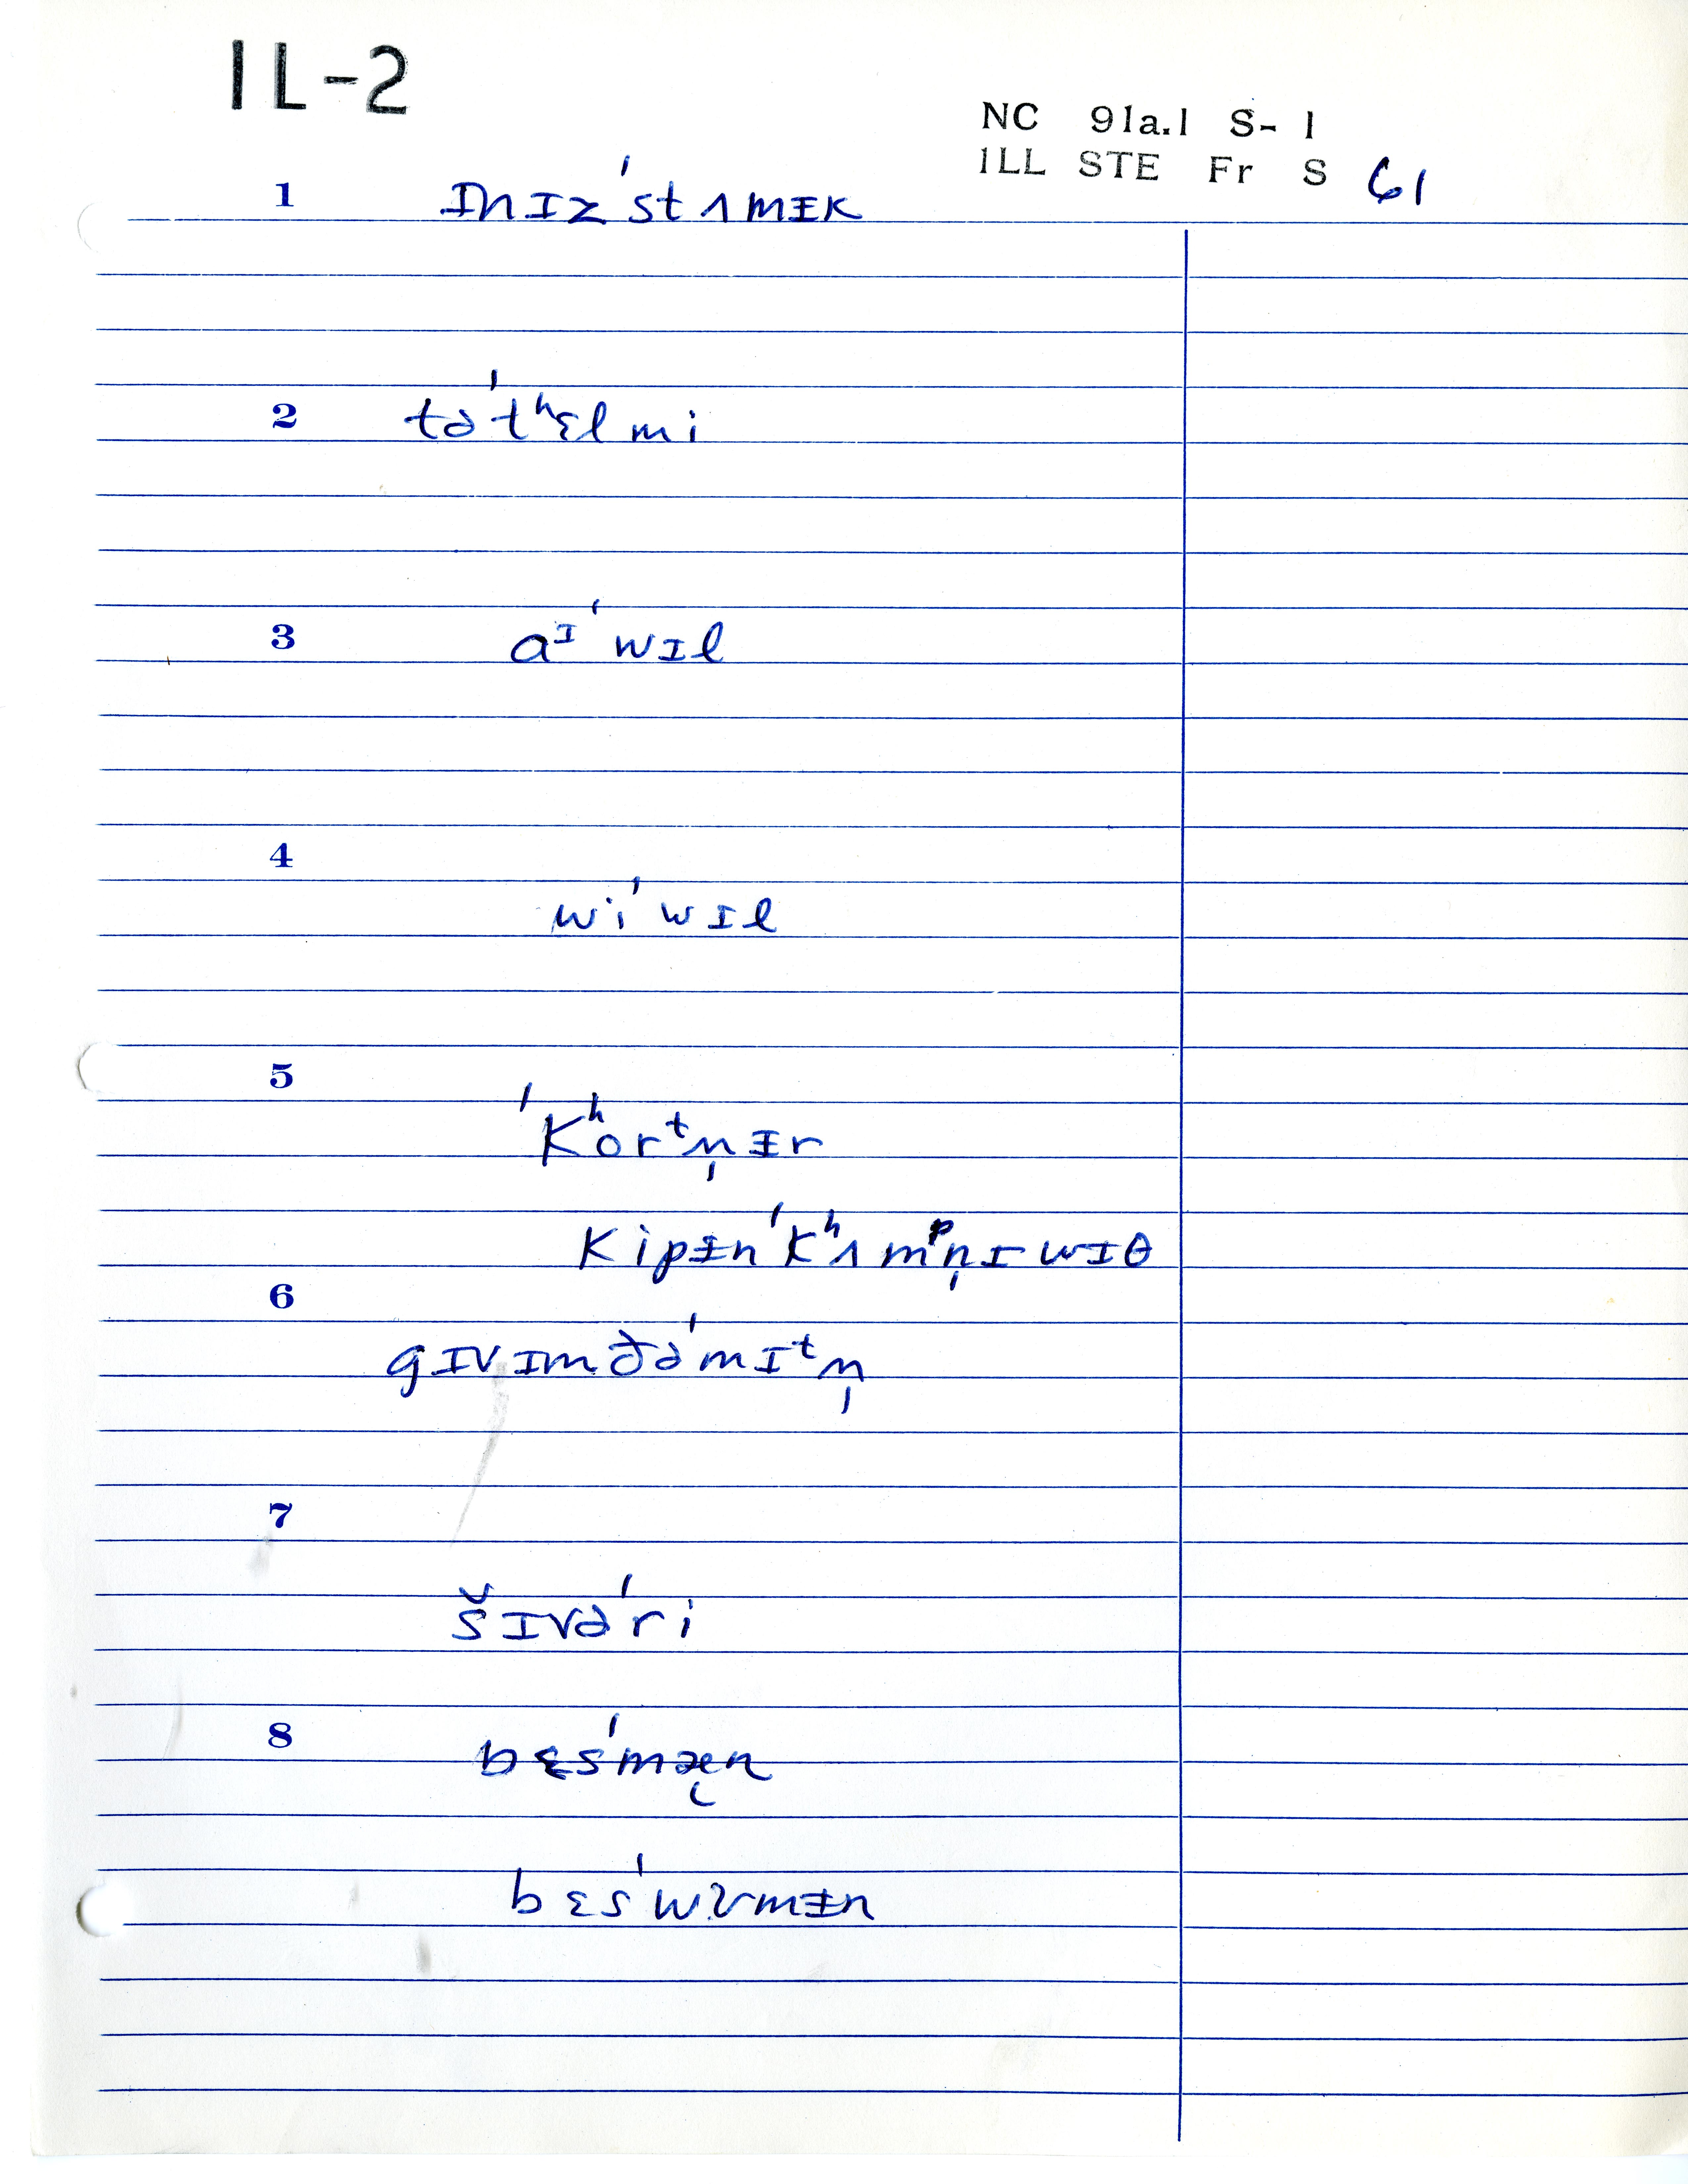 IL-2
NC 91a.1 S- 1
ILL STE Fr S 61
1 ɪnɪzˈstʌmᵻk
2 təˈtʰɛlmi
3 aᴵˈwɪl
4 wiˈwɪl
5 ˈkʰorᵗn̩ᵻr
kipᵻnˈkʰʌmᵖn̩ɪwɪθ
6 gɪvɪmðəˈmɪᵗn̩
7 šɪvəˈri
8 bɛsˈmæ̨n
bɛsˈwʊmᵻn